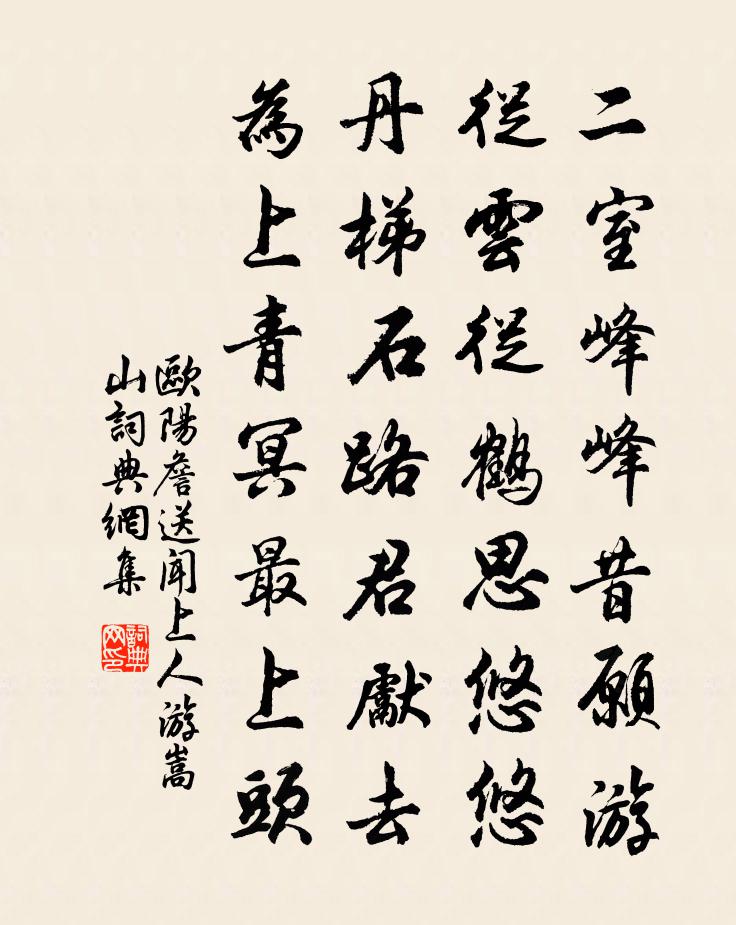 二室峰峰昔願游
從雲從鶴思悠悠
丹梯石路君獻去
為上青冥最上頭
歐陽詹送聞上人游嵩
山詞典網集
詞典
网印